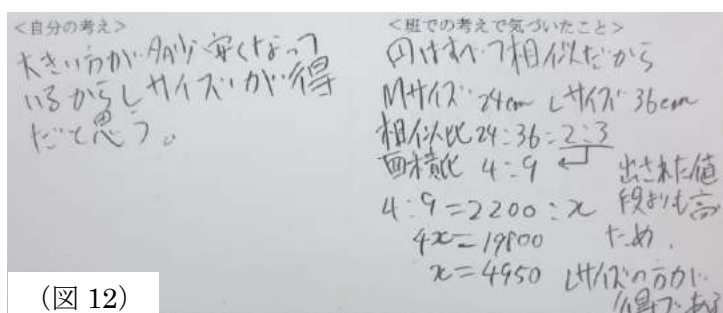 <自分の考え>
大きい方が多少安くなって
いるからLサイズが得
だと思う。
<班での考えで気づいたこと>
円はすべて相似だから
Mサイズ 24cm Lサイズ 36cm
相似比 24:36=2:3
面積比 4:9
4:9=2200:x
4x=19800
x=4950
出された値
段よりも高
ため、
Lサイズの方が
得である
(図 12)